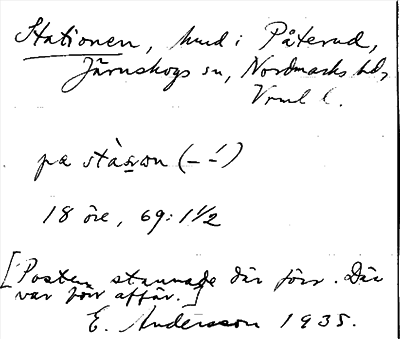 Stationen, hmd i Påterud,
Järnskogs sn, Nordmarks hd,
Vrml l.
pa stàšon (– ´–)
18 öre, 69:1 1/2
[Posten stannade där förr. Där
var förr affär.]
E. Andersson 1935.